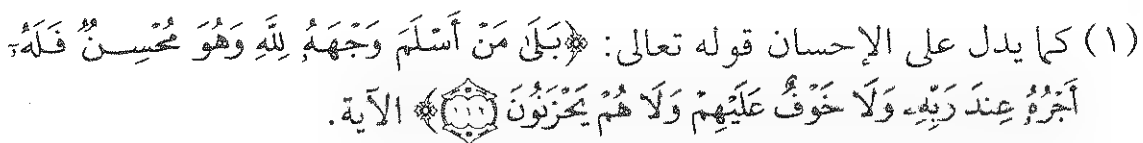 (١) كما يدل على الإحسان قوله تعالى: ﴿بَلَىٰ مَنْ أَسْلَمَ وَجْهَهُۥ لِلَّهِ وَهُوَ مُحْسِنٌ فَلَهُۥٓ
أَجْرُهُۥ عِندَ رَبِّهِۦ وَلَا خَوْفٌ عَلَيْهِمْ وَلَا هُمْ يَحْزَنُونَ ﴾ الآية.